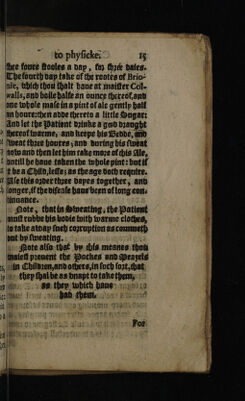 to physicke. 15
thre foure stooles a day, for three daies.
The fourth day take of the rootes of Brio-
nie, which thou shalt haue at maister Col-
walls, and boile halfe an ounce thereof, and
one whole mase in a pint of ale gently half
an houre: then adde thereto a little Sugar:
And let the Patient drinke a good draught
thereof warme, and keepe his Bedde, and
sweat three houres, and during his sweat
new and then let him take more of this Ale,
untill he haue taken the whole pint: but if
it be a Child, lesse; as the age doth require.
Use this order three dayes together, and
longer, if the disease haue been of long con-
tinuance.
Note, that in Sweating, the Patient
must rubbe his bodie with warme clothes,
to take away such corruption as commeth
out by sweating.
Note also that by this meanes thou
maiest preuent the Pockes and Meazels
in Children, and others, in such sort, that
they shal be as vnapt to take them,
as they which haue
had them.
For